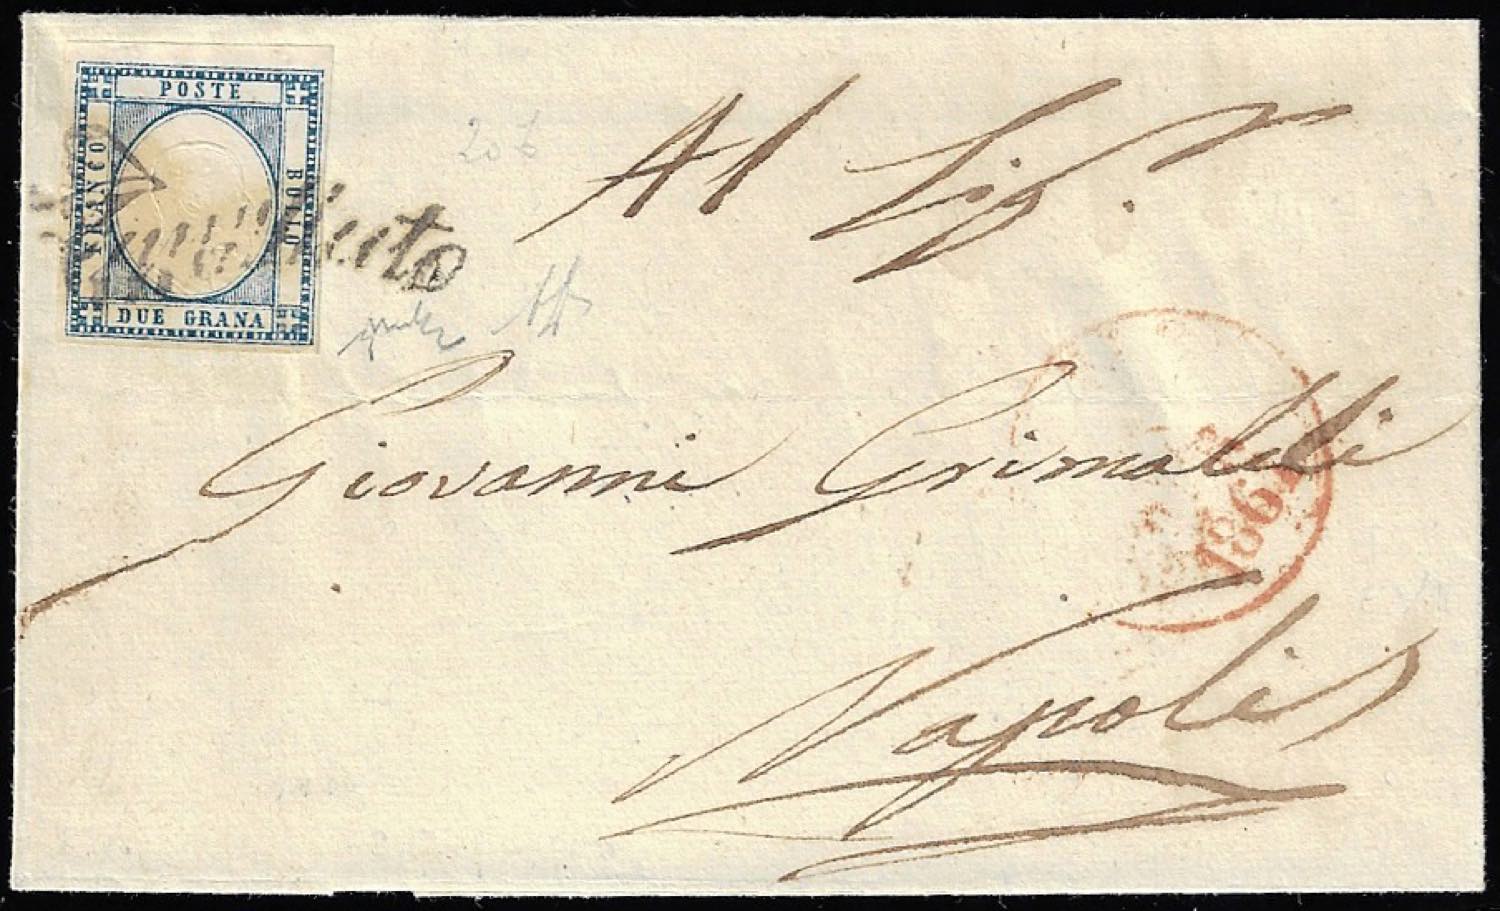 POSTE
FRANCO
BOLLO
DUE GRANA
Al Sig.r
Giovanni Grimaldi
Napoli
1861